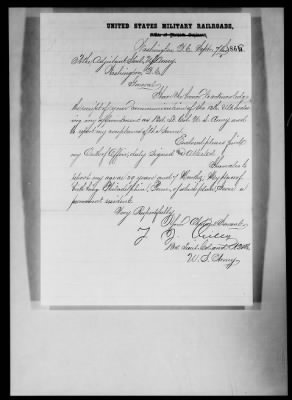 UNITED STATES MILITARY RAILROADS,
Washington, D.C. Sept. 7th, 1866
To the Adjutant Genl. U.S. Army
Washington D.C.
General
I have the honor to acknowledge
the receipt of your communication of the 13th Ult.
ing my appointment as Bvt. Lt. Col. U.S. Army and
to report my acceptance of the same.
Enclosed please find
my Oath of Office, duly signed and attested.
I have also to
report my age as 30 years and
Philadelphia, Penna, of which place I am a
permanent resident.
Very Respectfully
Your Obdt Servant
Bvt. Lieut. Col. and A.Q.M.
U.S. Army